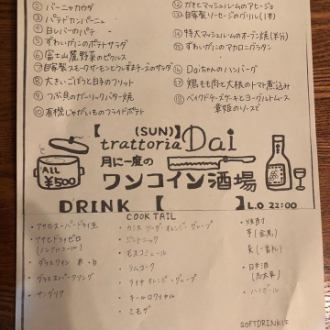 ② バーニャカウダ
③ パテドカンパーニュ
④ 白レバーのパテ
⑤ ずわいガニのポテトサラダ
⑥ 富士山麓野菜のピクルス
⑦ 自家製スモークサーモンとクリームチーズのサラダ
⑧ 大きいごぼうと白ネギのフリット
⑨ つぶ貝のガーリックバター焼
⑩ 有機じゃがいものフライドポテト
⑫ カキとマッシュルームのアヒージョ
⑬ 自家製ソーセージのグリル(1本)
⑭ 特大マッシュルームのオーブン焼
⑮ ずわいガニのマカロニグラタン
⑯ Daiちゃんのハンバーグ
⑰ 鶏もも肉と大根のトマト煮込み
⑱ ベイクドチーズケーキとヨーグルトムース
【 (SUN)】
trattoria Dai
月に一度の
ワンコイン酒場
ALL ¥500
DRINK 【 】L.O 22:00
COCKTAIL
・アサヒスーパードライ生
・アサヒドライゼロ
(ノンアルコール)
・グラスワイン 赤・白
・グラススパークリング
・サングリア
・カシス ソーダ・オレンジ・グレープ
・ジントニック
・モスコミュール
・ソルティ
・ライチ オレンジ・グレープ
・キールロワイヤル
・ミモザ
・焼酎
芋(金黒)
麦
・日本酒
・ハイボール
SOFT DRINK